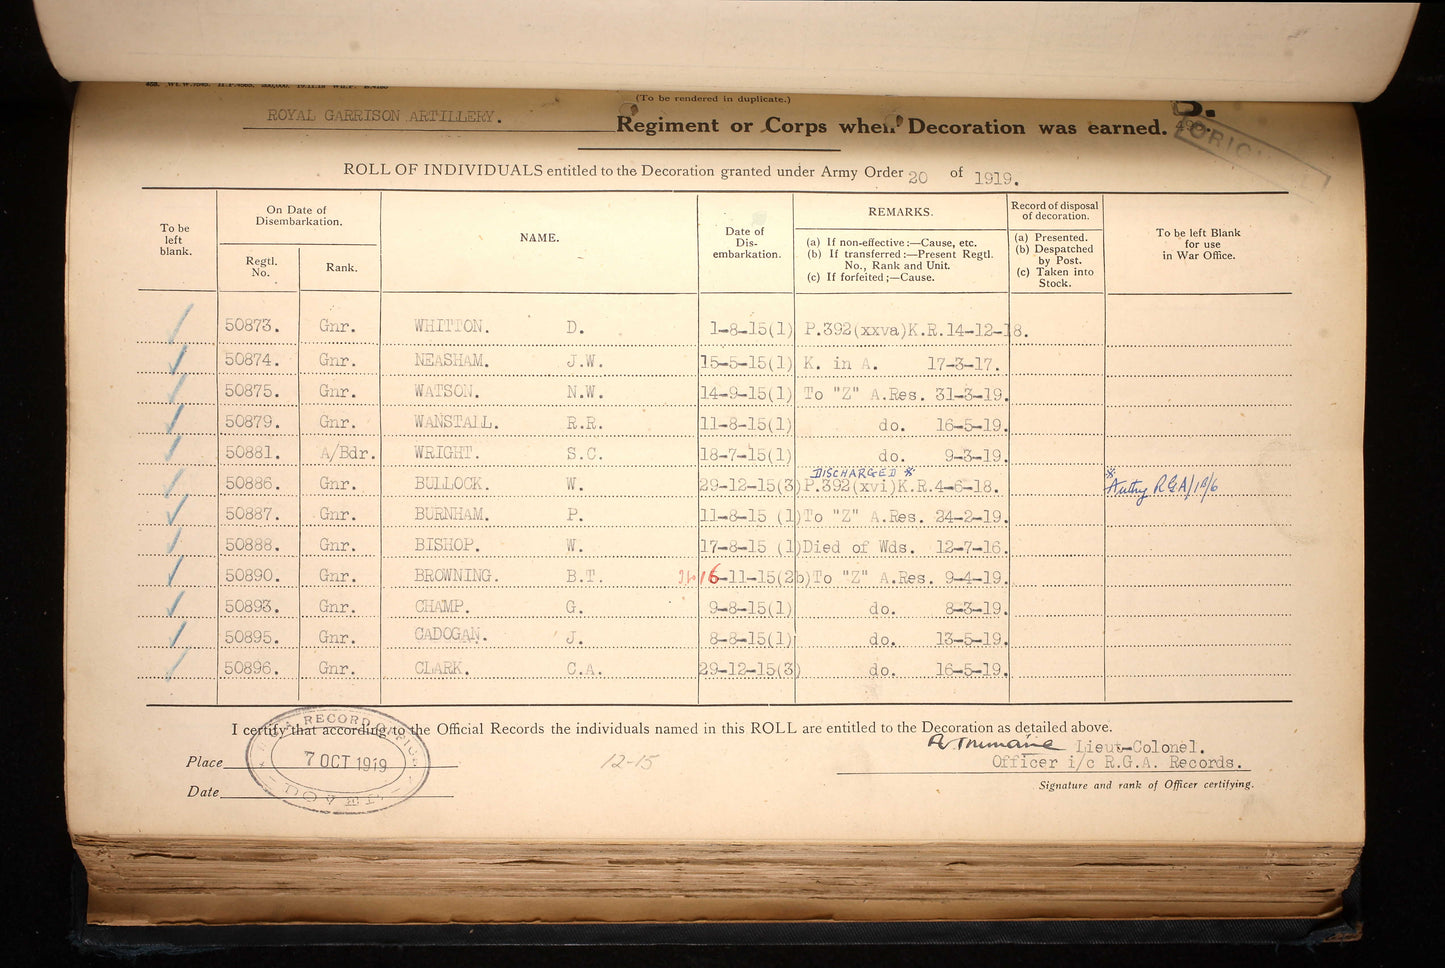 (To be rendered in duplicate.)
ROYAL GARRISON ARTILLERY. Regiment or Corps when Decoration was earned.
ROLL OF INDIVIDUALS entitled to the Decoration granted under Army Order 20 of 1919.
To be left blank.
On Date of Disembarkation.
Regtl. No.
Rank.
NAME.
Date of Dis-embarkation.
REMARKS.
(a) If non-effective:—Cause, etc.
(b) If transferred:—Present Regtl. No., Rank and Unit.
(c) If forfeited;—Cause.
Record of disposal of decoration.
(a) Presented.
(b) Despatched by Post.
(c) Taken into Stock.
To be left Blank for use in War Office.
50873. Gnr. WHITTON. D. 1-8-15(1) P.392(xxva)K.R.14-12-18.
50874. Gnr. NEASHAM. J.W. 15-5-15(1) K. in A. 17-3-17.
50875. Gnr. WATSON. N.W. 14-9-15(1) To "Z" A.Res. 31-3-19.
50879. Gnr. WANSTALL. R.R. 11-8-15(1) do. 16-5-19.
50881. A/Bdr. WRIGHT. S.C. 18-7-15(1) do. 9-3-19.
DISCHARGED *
50886. Gnr. BULLOCK. W. 29-12-15(3) P.392(xvi)K.R.4-6-18. * Authy RGA/
50887. Gnr. BURNHAM. P. 11-8-15 (1) To "Z" A.Res. 24-2-19.
50888. Gnr. BISHOP. W. 17-8-15 (1) Died of Wds. 12-7-16.
50890. Gnr. BROWNING. B.T. 16-11-15(2b) To "Z" A.Res. 9-4-19.
50893. Gnr. CHAMP. G. 9-8-15(1) do. 8-3-19.
50895. Gnr. CADOGAN. J. 8-8-15(1) do. 13-5-19.
50896. Gnr. CLARK. C.A. 29-12-15(3) do. 16-5-19.
I certify that according to the Official Records the individuals named in this ROLL are entitled to the Decoration as detailed above.
Lieut-Colonel.
Place
RECORD OFFICE
7 OCT 1919
12-15
Officer i/c R.G.A. Records.
Date
Signature and rank of Officer certifying.